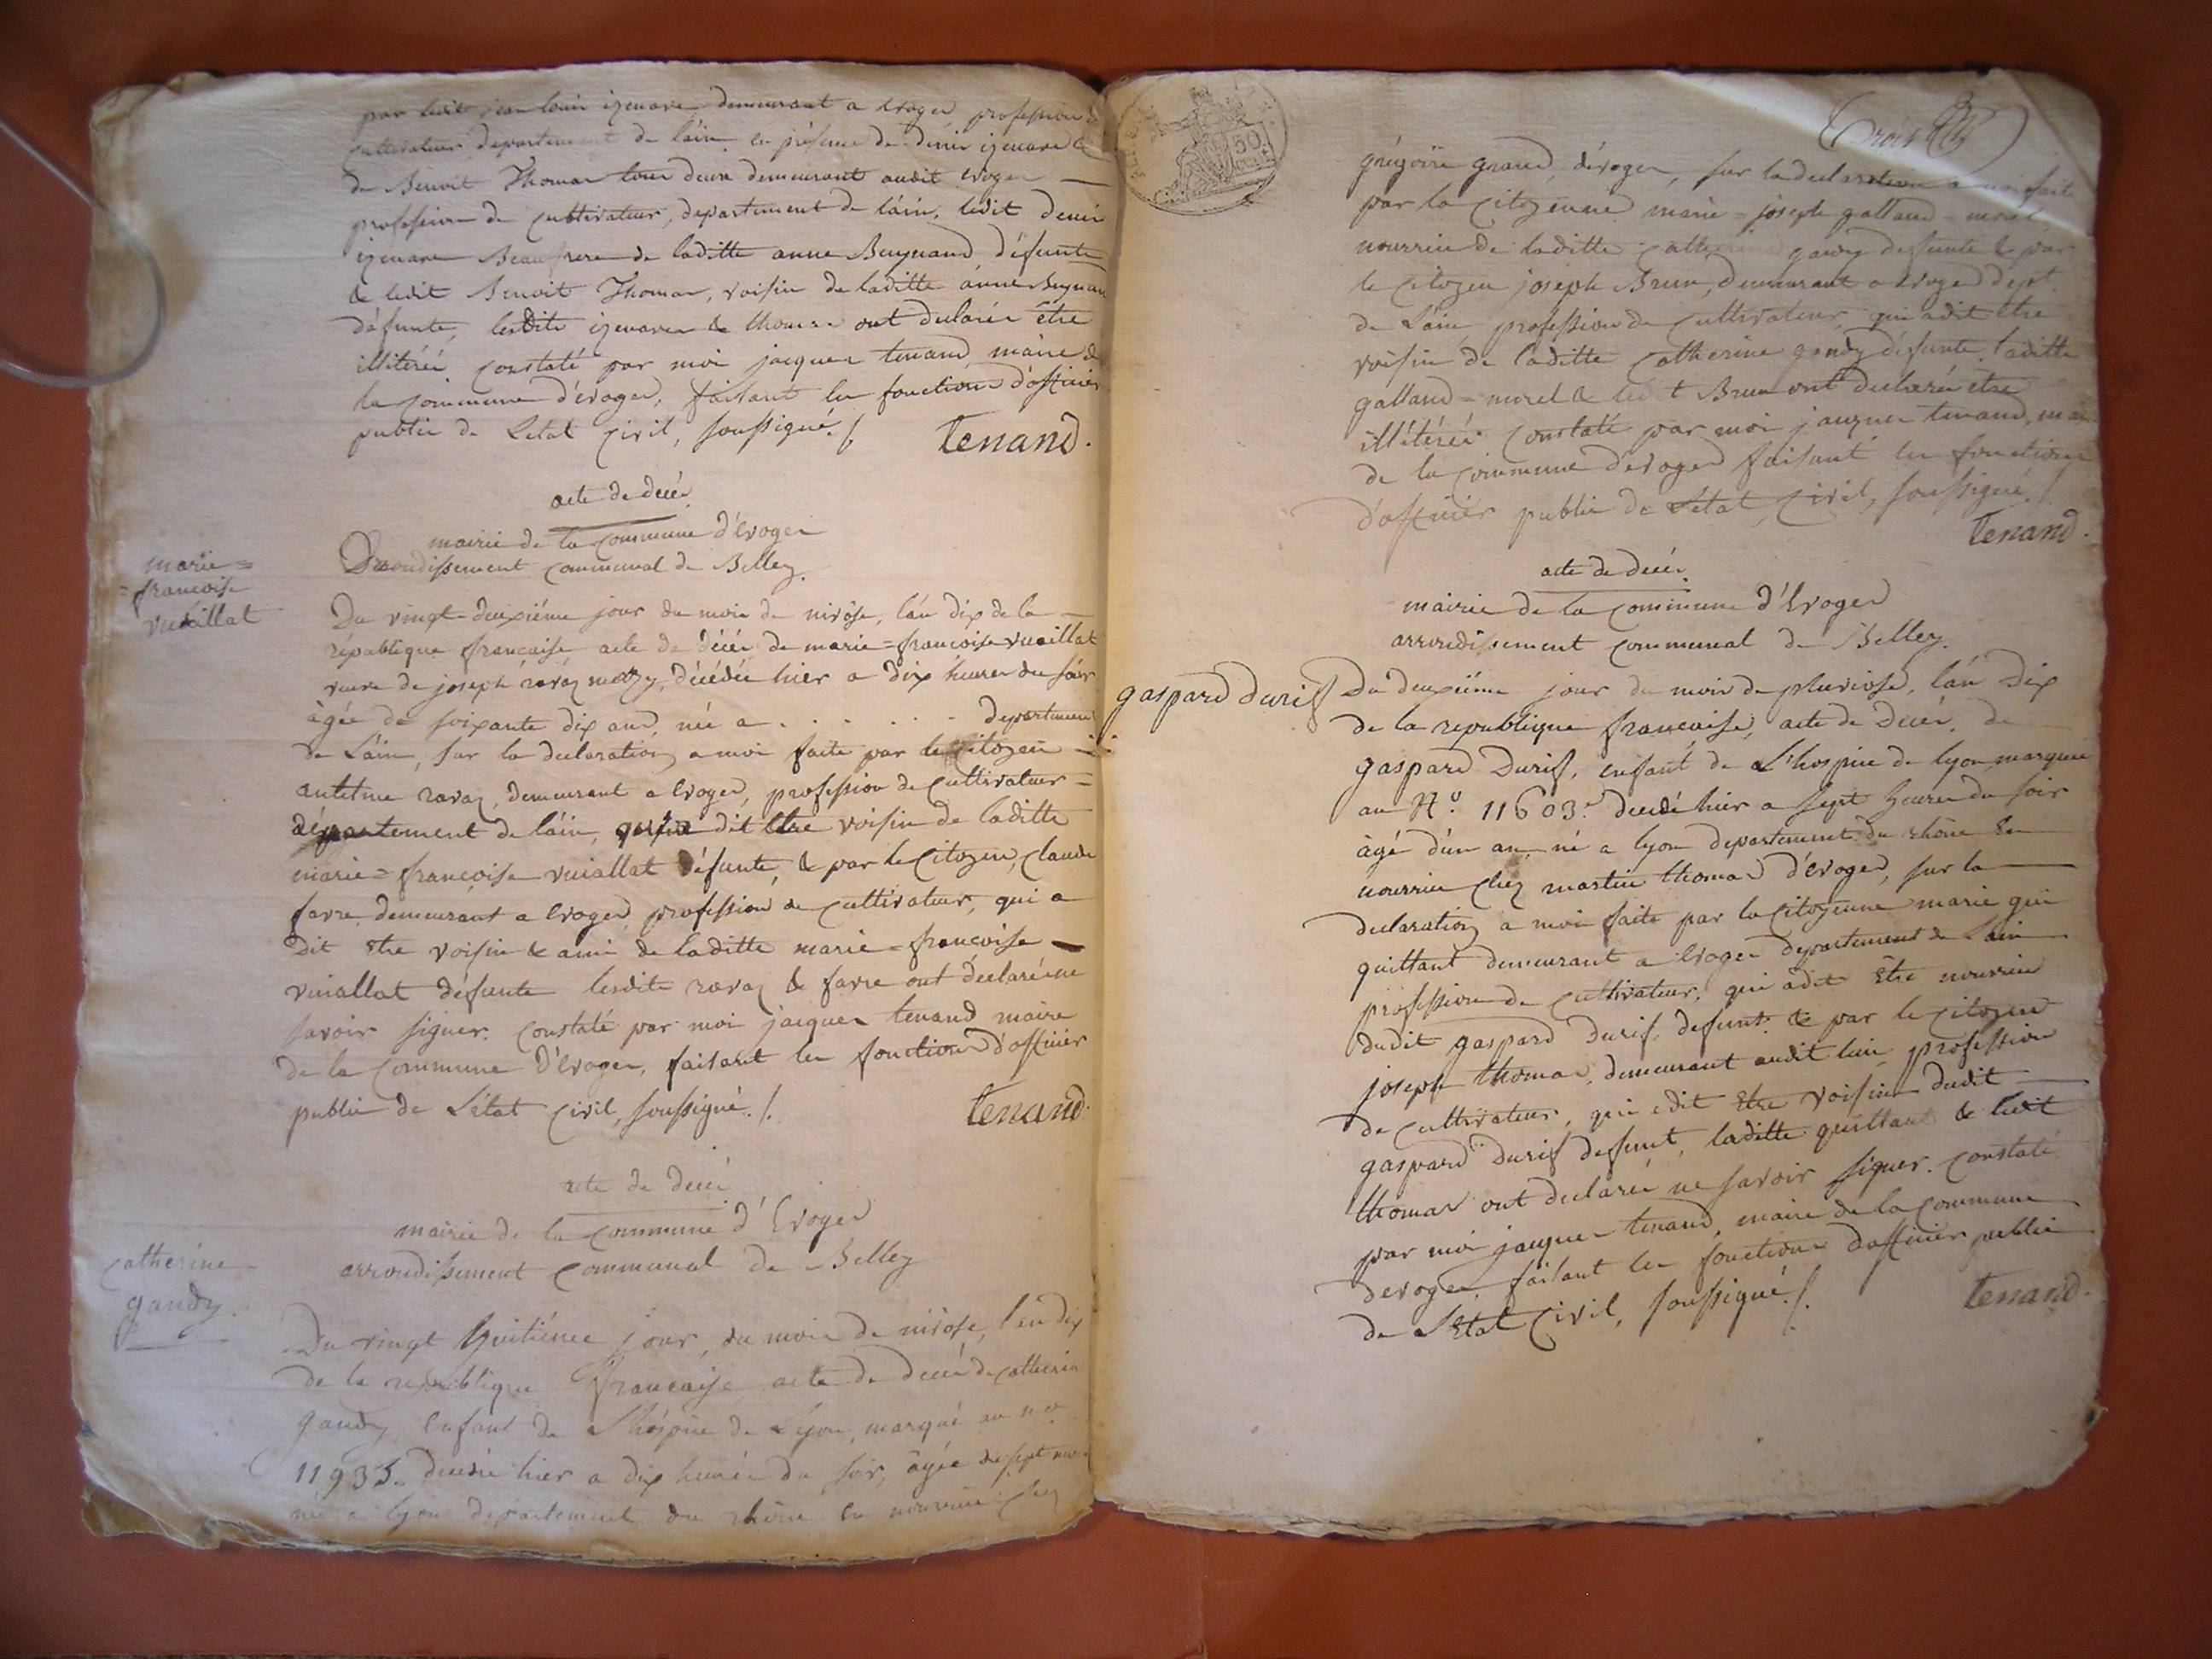 par ledit jean louis izenave demeurant a Evoges, profession de
cultivateur, departement de láin en présence de denis izenave &
de Benoit Thomas tous deux demeurant audit Evoges
profession de cultivateur, departement de láin, ledit denis
izenave Beaufrere de laditte anne Buynand défunte
& ledit Benoit Thomas, voisin de laditte anne Buynand
défunte, lesdits izenaves & thomas ont declarés être
illitérés constaté par moi jacques tenand maire de
la commune d'évoges, faisant les fonctions d'officier
public de Letat Civil, soussigné ./.
tenand.
acte de decés
mairie de la commune d'Evoges
Arrondissement communal de Belley.
marie=
=francoise
vuaillat
Du vingt-deuxiéme jour du mois de nivôse, l'án dix de la
république francaise acte de décés de marie=francoise vuaillat
veuve de joseph ravaz décédée hier a dix heures du soir
âgée de soixante dix ans, née a . . . . . . departement
de Láin, sur la declaration a moi faite par le citoyen
antelme ravaz, demeurant a Evoges, profession de cultivateur=
département de láin, qui a dit être voisin de laditte
marie=françoise vuiallat défunte, & par le Citoyen, Claude
favre demeurant a Evoges, profession de cultivateur, qui a
dit être voisin & ami de laditte marie=francoise
vuiallat défunte lesdits ravaz & favre ont déclarés ne
savoir signer. constaté par moi jacques tenand maire
de la commune D'Evoges, faisant les fonctions d'officier
public de L'état civil, soussigné ./.
tenand.
acte de decés
mairie de la commune d'Evoges
arrondissement communal de Belley
catherine
gandy.
Du vingt huitiéme jour, du mois de nivôse, l'án dix
de la république francaise acte de decés de catherine
gandy enfant de L'hospice de Lyon, marqué au nº
11935. decedée hier a dix heures du soir, âgée de sept mois
née a lyon departement du rhône en nourrice chez
Trois
50
grégoire grand, d'évoges, sur la declaration a moi faite
par la citoyenne marie=joseph galland=morel
nourrice de laditte catherine gandy defunte & par
le citoyen joseph Brun, demeurant a Evoges dept.
de Láin profession de cultivateur, qui a dit être
voisin de laditte catherine gandy défunte, laditte
galland=morel & ledit Brun ont declarés être
illitérés constaté par moi jacques tenand, maire
de la commune d'évoges faisant les fonctions
d'officier public de L'etat Civil, soussigné ./.
tenand.
acte de decés.
mairie de la commune d'Evoges
arrondissement communal de Belley.
gaspard durif
Du deuxiéme jour du mois de pluviose, l'án dix
de la republique française, acte de decés, de
gaspard Durif, enfant de L'hospice de lyon, marqué
au Nº. 11603. decedé hier a sept heures du soir
âgé d'un an, né a lyon departement du rhône en
nourrice chez martin thomas d'évoges, sur la
declaration a moi faite par la citoyenne marie
quittant demeurant a Evoges departement de Láin
profession de cultivateur, qui a dit être nourrice
dudit gaspard durif, defunt & par le citoyen
joseph thomas, demeurant audit lieu profession
de cultivateur, qui a dit être voisin dudit
gaspard durif defunt, laditte quittant & ledit
thomas ont declarés ne savoir signer. constaté
par moi jacques tenand, maire de la commune
d'evoges faisant les fonctions d'officier public
de L'Etat civil, soussigné ./.
tenand.